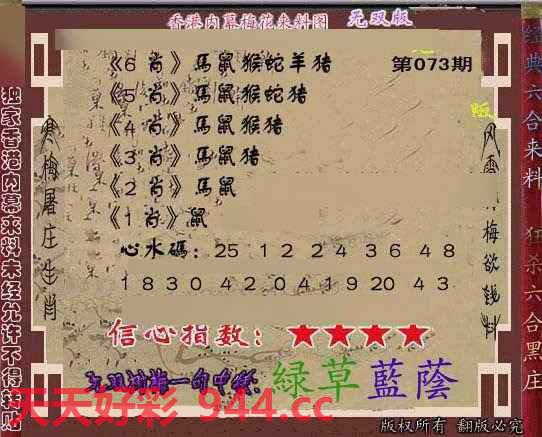 香港内幕梅花来料图 无双版
《6 肖》馬鼠猴蛇羊猪 第073期
《5 肖》馬鼠猴蛇猪
《4 肖》馬鼠猴猪
《3 肖》馬鼠猪
《2 肖》馬鼠
《1 肖》鼠
心水碼：25 12 24 36 48
18 30 42 04 19 20 43
信心指数：★★★★
一句中特：綠草藍蔭
天天好彩 944.cc
版权所有 翻版必究
独家香港内幕来料未经允许不得转贴
寒梅屠庄生肖
梅欲钱料
经典六合来料
狂杀六合黑庄